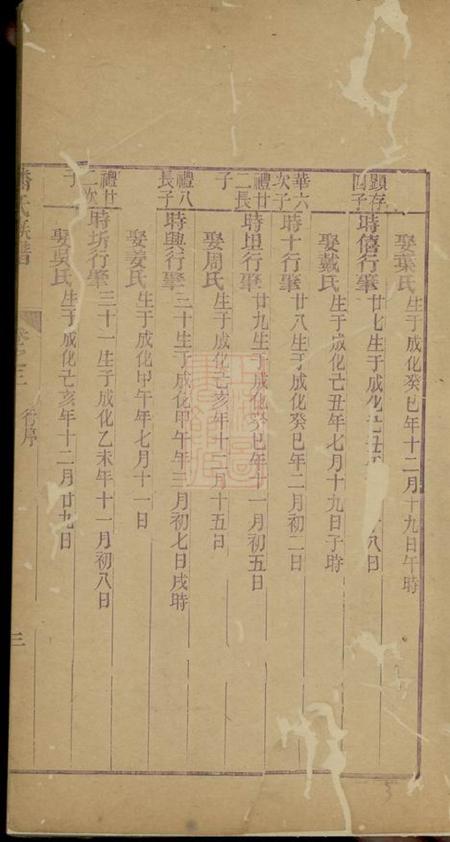 娶葉氏生于成化癸巳年十二月十九日午時
顯存四子
時僖行肇廿七生于成化己丑 八日
娶戴氏生于成化己丑年七月十九日子時
華六次子
時十行肇廿八生于成化癸巳年二月初二日
禮廿二長子
時坦行肇廿九生于成化癸巳年十一月初五日
娶周氏生于成化己亥年十二月十五日
禮八長子
時興行肇三十生于成化甲午年三月初七日戌時
娶姜氏生于成化甲午年七月十一日
禮廿二次子
時坊行肇三十一生于成化乙未年十一月初八日
娶吳氏生于成化己亥年十二月廿九日
氏族譜
行序
三